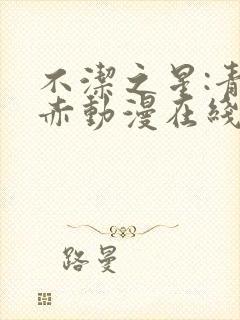 不潔之星:青
赤動漫在綫
路曼